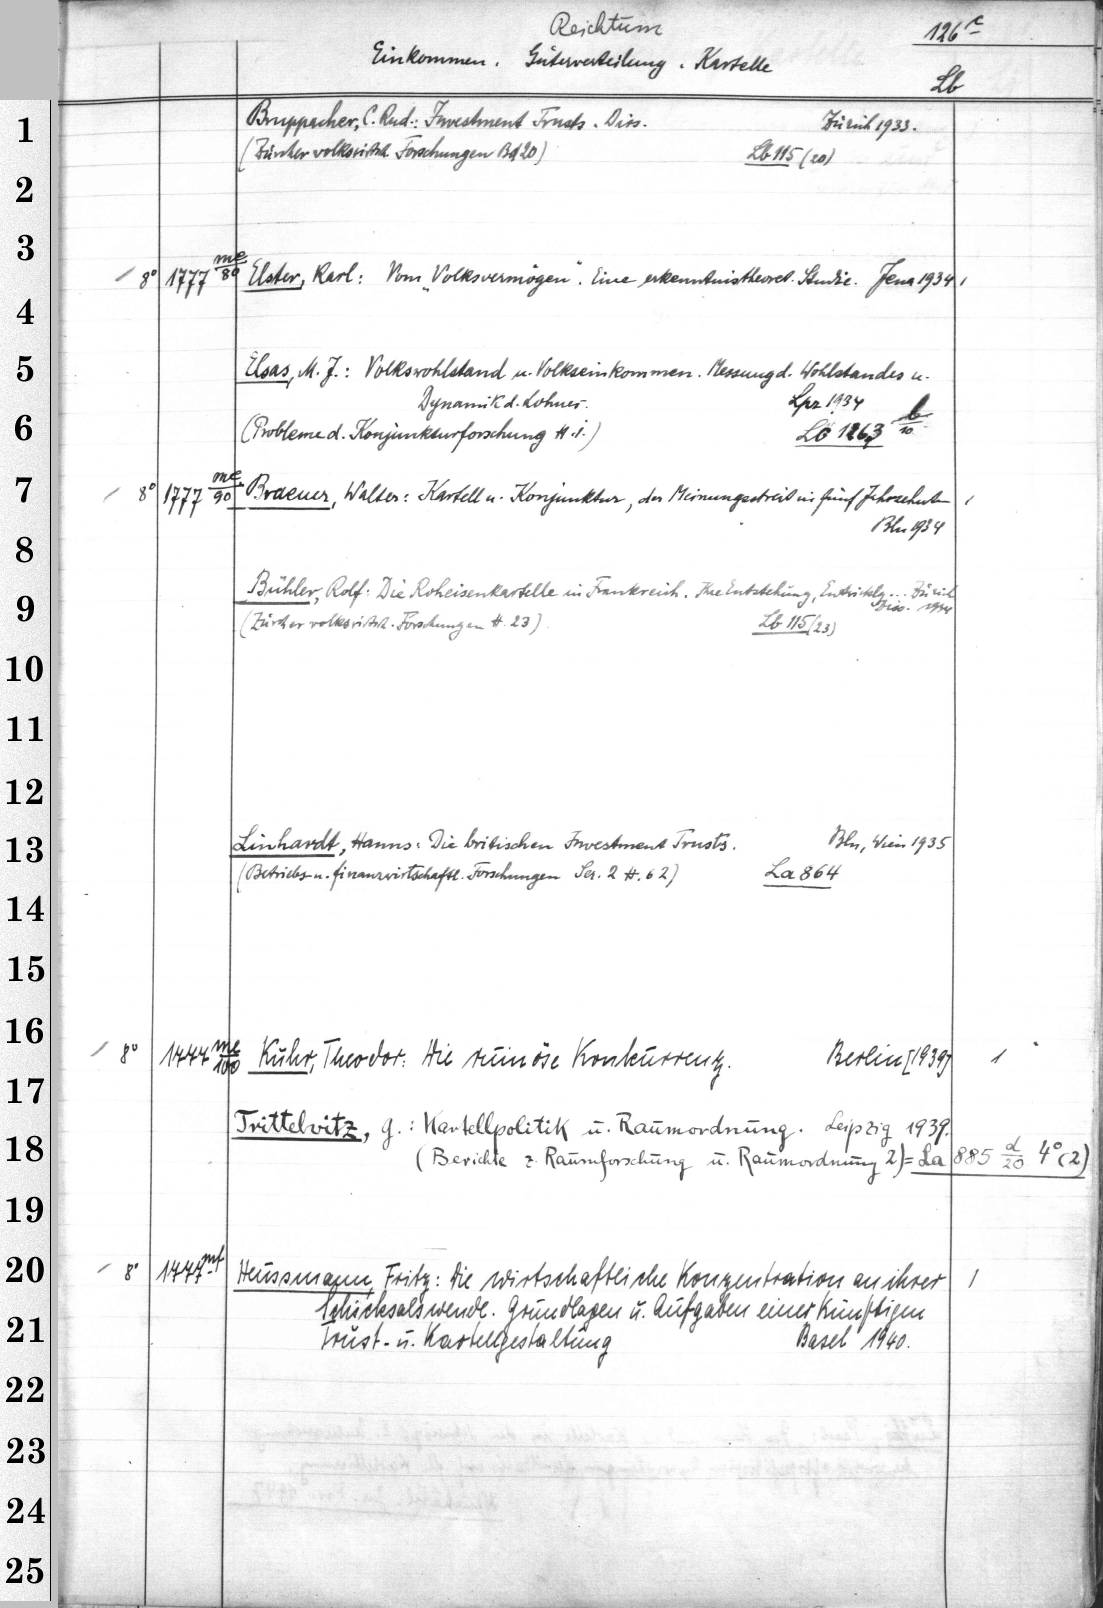 Reichtum
126 r
Einkommen. Güterverteilung. Kartelle
Lb
1 Bruppacher, C. Rud.: Investment Trusts. Diss. Zürich 1933.
(Zürcher volkswirtsch. Forschungen Bd 20) Lb 115 (20)
2
3
8° 1777 me/80 Elster, Karl: Vom „Volksvermögen“. Eine erkenntnistheoret. Studie. Jena 1934 1
4
5 Elsas, M. J.: Volkswohlstand u. Volkseinkommen. Messung d. Wohlstandes u.
Dynamik d. Lohnes. Lpz 1934
6 (Probleme d. Konjunkturforschung H. 1.) Lb 1263 b/10
7 8° 1777 me/90 Braeuer, Walter: Kartell u. Konjunktur, der Meinungsstreit in fünf Jahrzehnten 1
Bln 1934
8
Bühler, Rolf: Die Roheisenkartelle in Frankreich. Ihre Entstehung, Entwicklg... Zürich
9 Diss. 1934
(Zürcher volkswirtsch. Forschungen H. 23) Lb 115 (23)
10
11
12
13 Linhardt, Hanns: Die britischen Investment Trusts. Bln, Wien 1935
(Betriebs- u. finanzwirtschaftl. Forschungen Ser. 2 H. 62) La 864
14
15
16
8° 1777 me/100 Kuhr, Theodor: Die ruinöse Konkurrenz. Berlin [1939] 1
17
Trittelvitz, G.: Kartellpolitik u. Raumordnung. Leipzig 1939.
18 (Berichte z. Raumforschung u. Raumordnung 2) = La 885 d/20 4° (2)
19
20 8° 1777 mf Heussmann, Fritz: Die wirtschaftliche Konzentration an ihrer 1
Schicksalswende. Grundlagen u. Aufgaben einer künftigen
21 Trust- u. Kartellgestaltung Basel 1940.
22
23
24
25